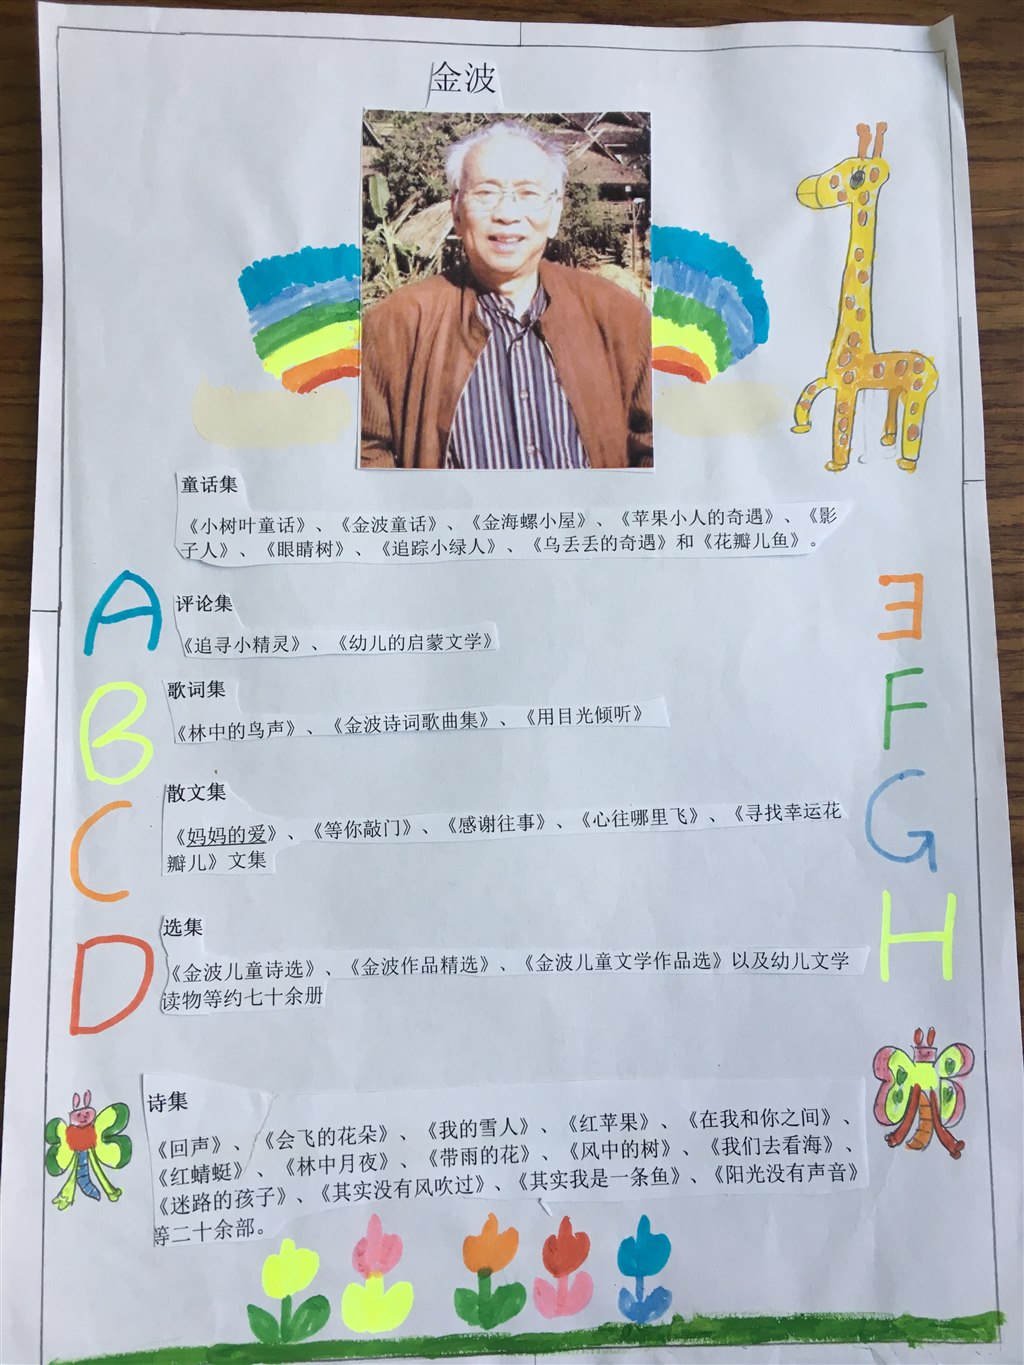 金波
童话集
《小树叶童话》、《金波童话》、《金海螺小屋》、《苹果小人的奇遇》、《影
子人》、《眼睛树》、《追踪小绿人》、《乌丢丢的奇遇》和《花瓣儿鱼》。
评论集
《追寻小精灵》、《幼儿的启蒙文学》
歌词集
《林中的鸟声》、《金波诗词歌曲集》、《用目光倾听》
散文集
《妈妈的爱》、《等你敲门》、《感谢往事》、《心往哪里飞》、《寻找幸运花
瓣儿》文集
选集
《金波儿童诗选》、《金波作品精选》、《金波儿童文学作品选》以及幼儿文学
读物等约七十余册
诗集
《回声》、《会飞的花朵》、《我的雪人》、《红苹果》、《在我和你之间》、
《红蜻蜓》、《林中月夜》、《带雨的花》、《风中的树》、《我们去看海》、
《迷路的孩子》、《其实没有风吹过》、《其实我是一条鱼》、《阳光没有声音》
等二十余部。
A
B
C
D
E
F
G
H